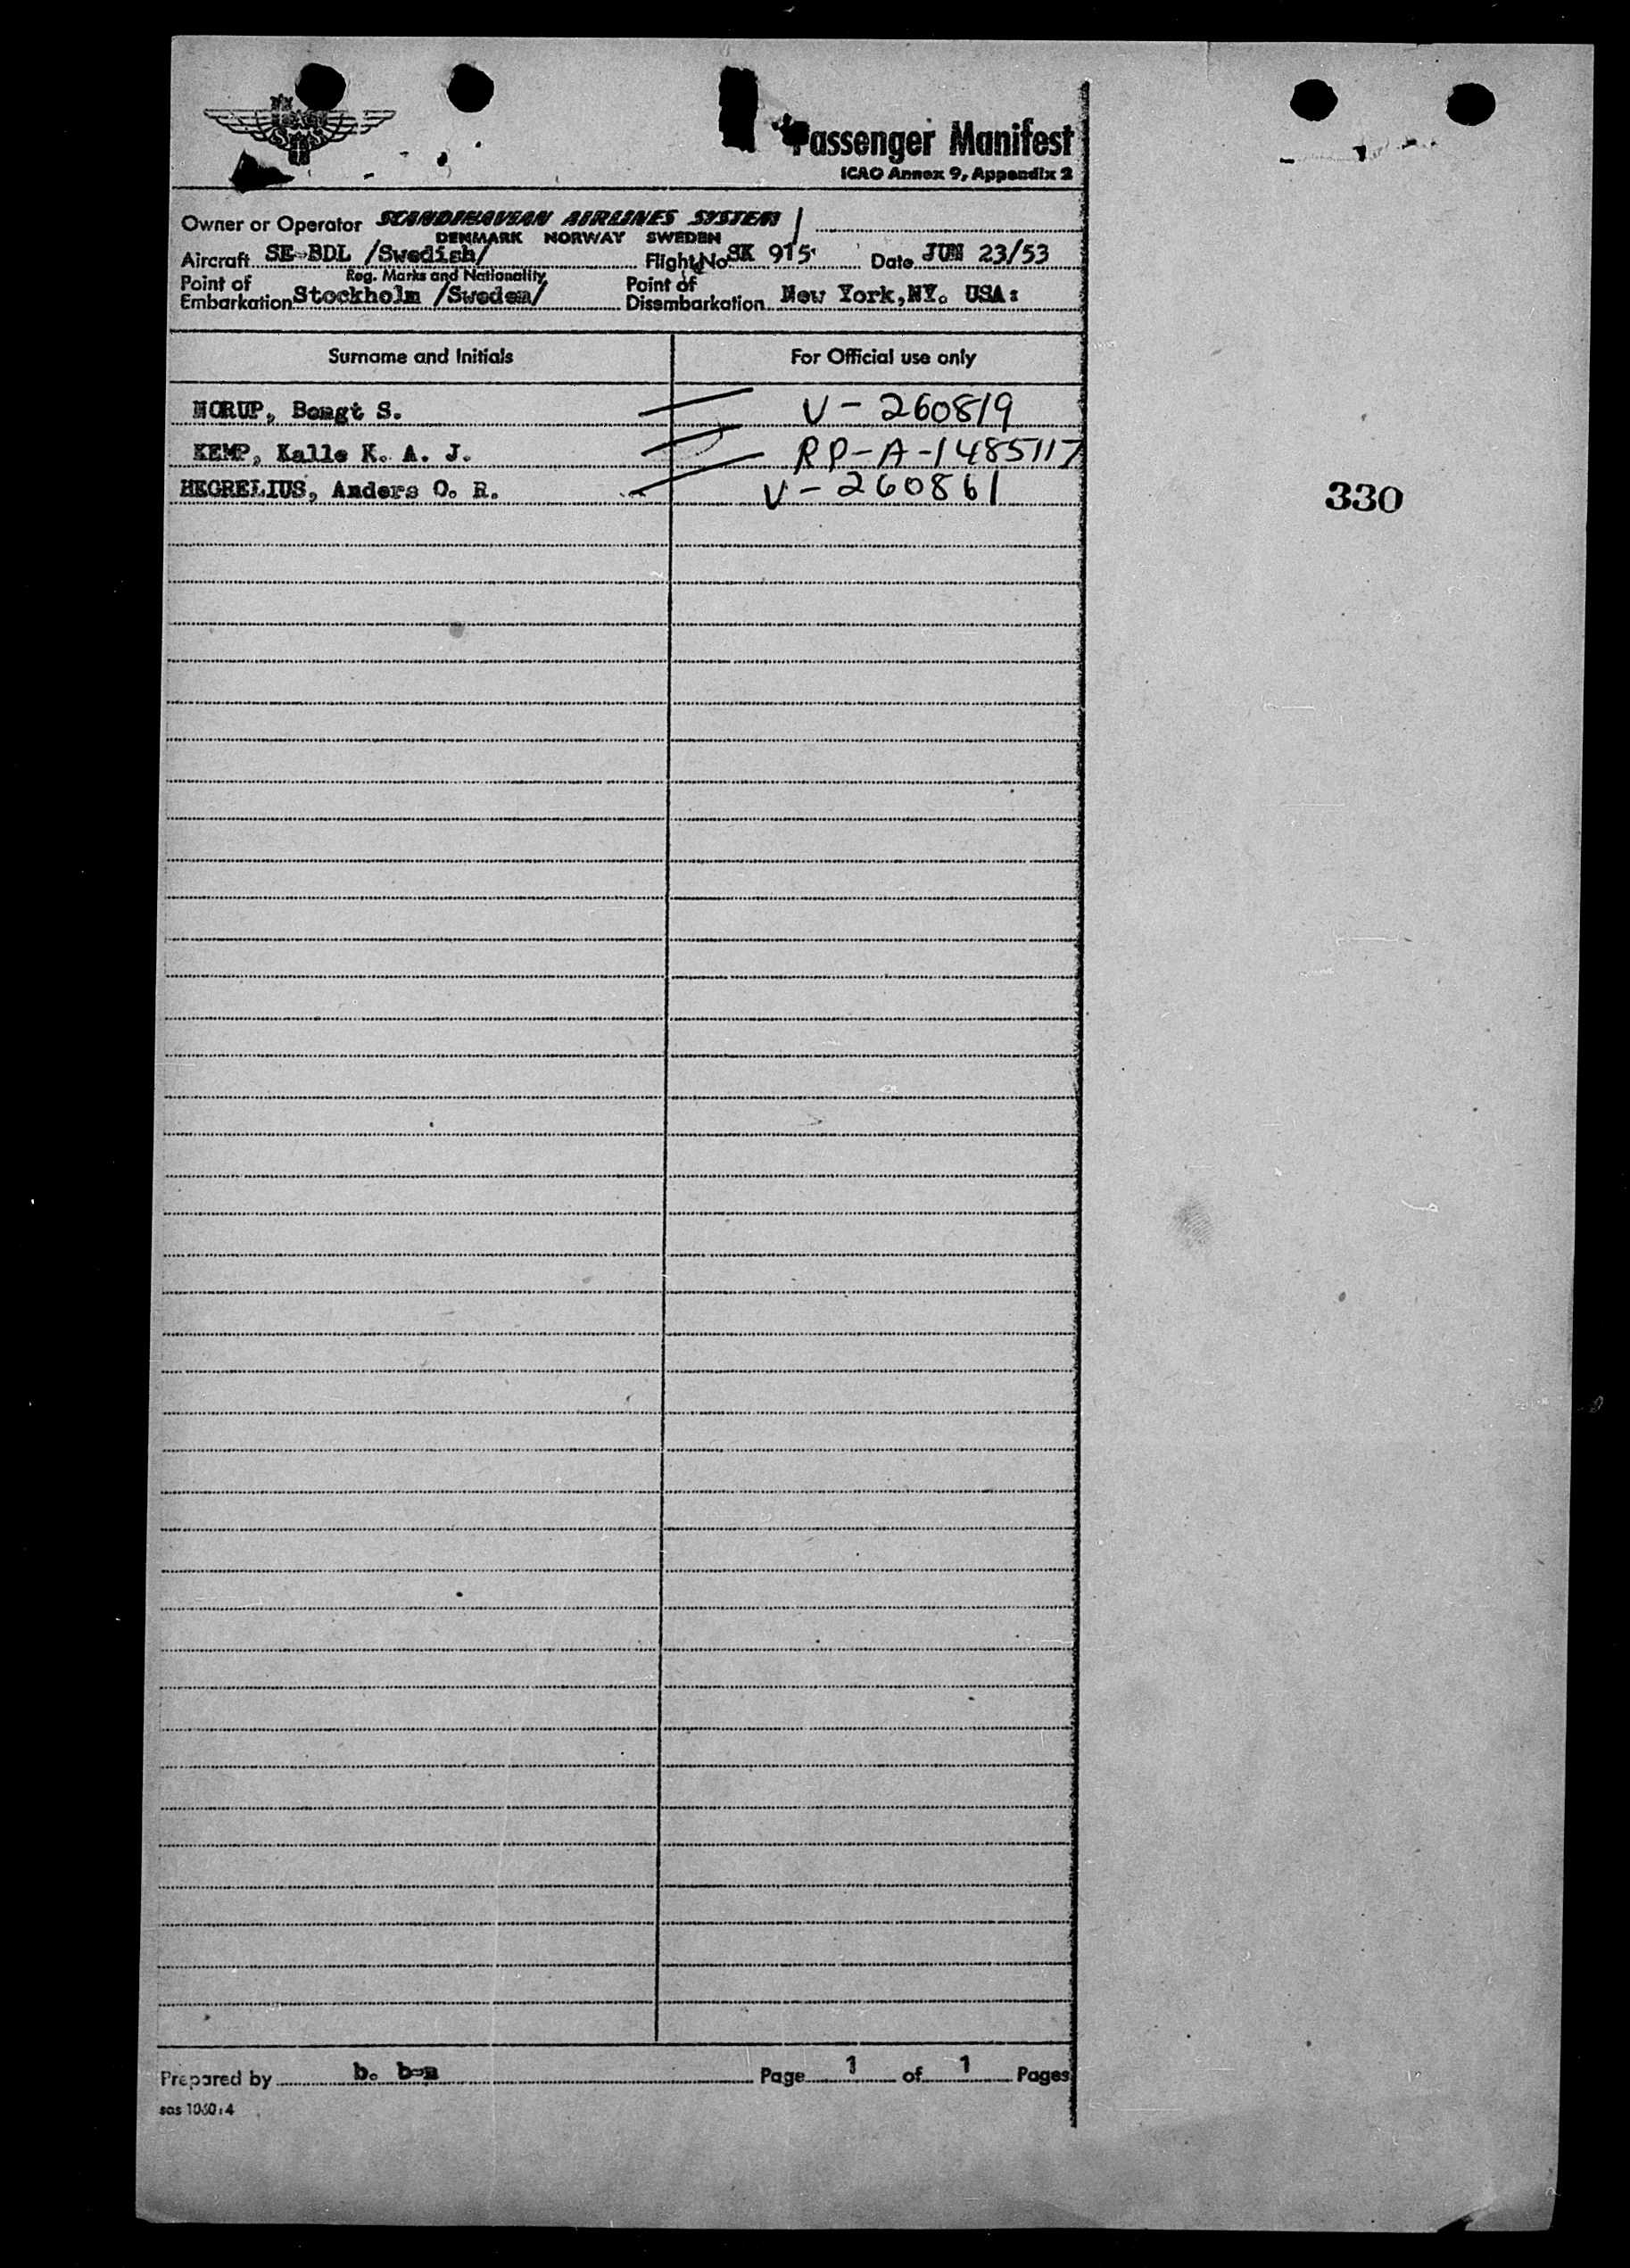 Passenger Manifest
ICAO Annex 9, Appendix 2
Owner or Operator SCANDINAVIAN AIRLINES SYSTEM
DENMARK NORWAY SWEDEN
Aircraft SE-BDL /Swedish/ Flight No SK 915 Date JUN 23/53
Reg. Marks and Nationality
Point of Embarkation Stockholm /Sweden/ Point of Disembarkation New York, NY. USA:
Surname and Initials For Official use only
NORUP, Bengt S. V-260819
KEMP, Kalle K. A. J. RP-A-1485117
HEGRELIUS, Anders O. R. V-260861
330
Prepared by b. b-n Page 1 of 1 Pages
sas 1060:4